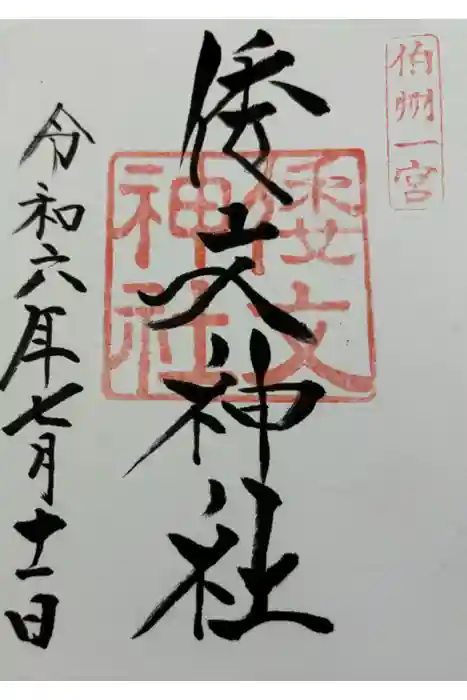 伯州一宮
倭文神社
倭文
神社
令和六年七月十一日